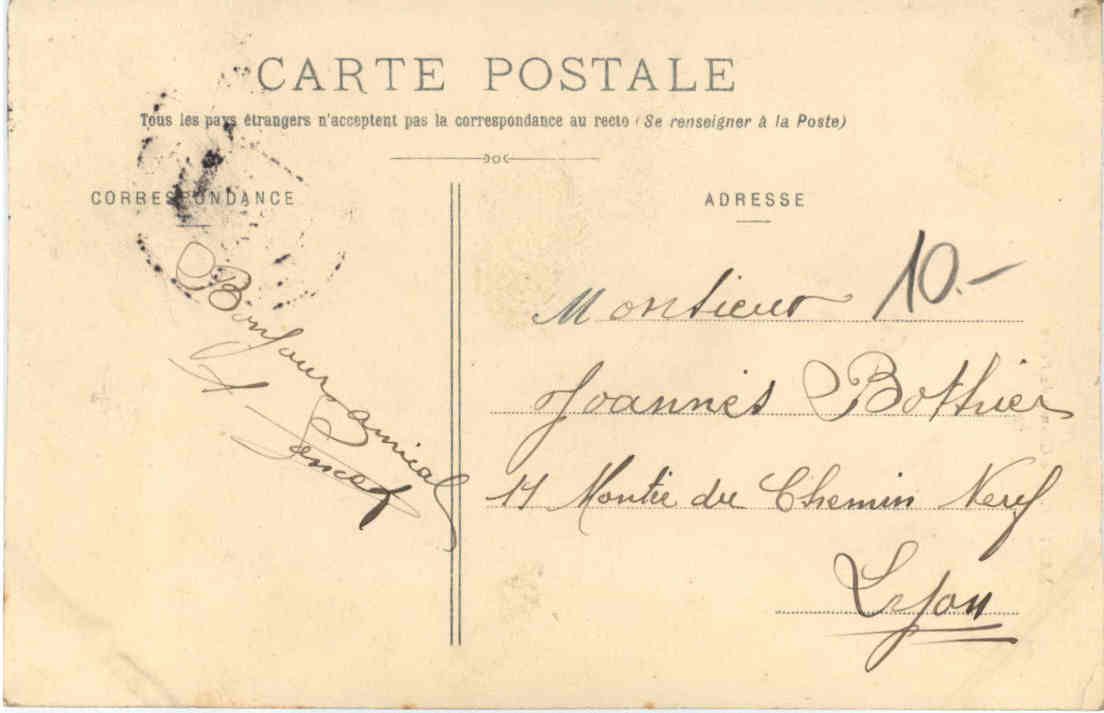 CARTE POSTALE
Tous les pays étrangers n'acceptent pas la correspondance au recto (Se renseigner à la Poste)
CORRESPONDANCE
Bonjour amical
ADRESSE
Monsieur 10.-
Joannès Bothier
11 Montée du Chemin Neuf
Lyon